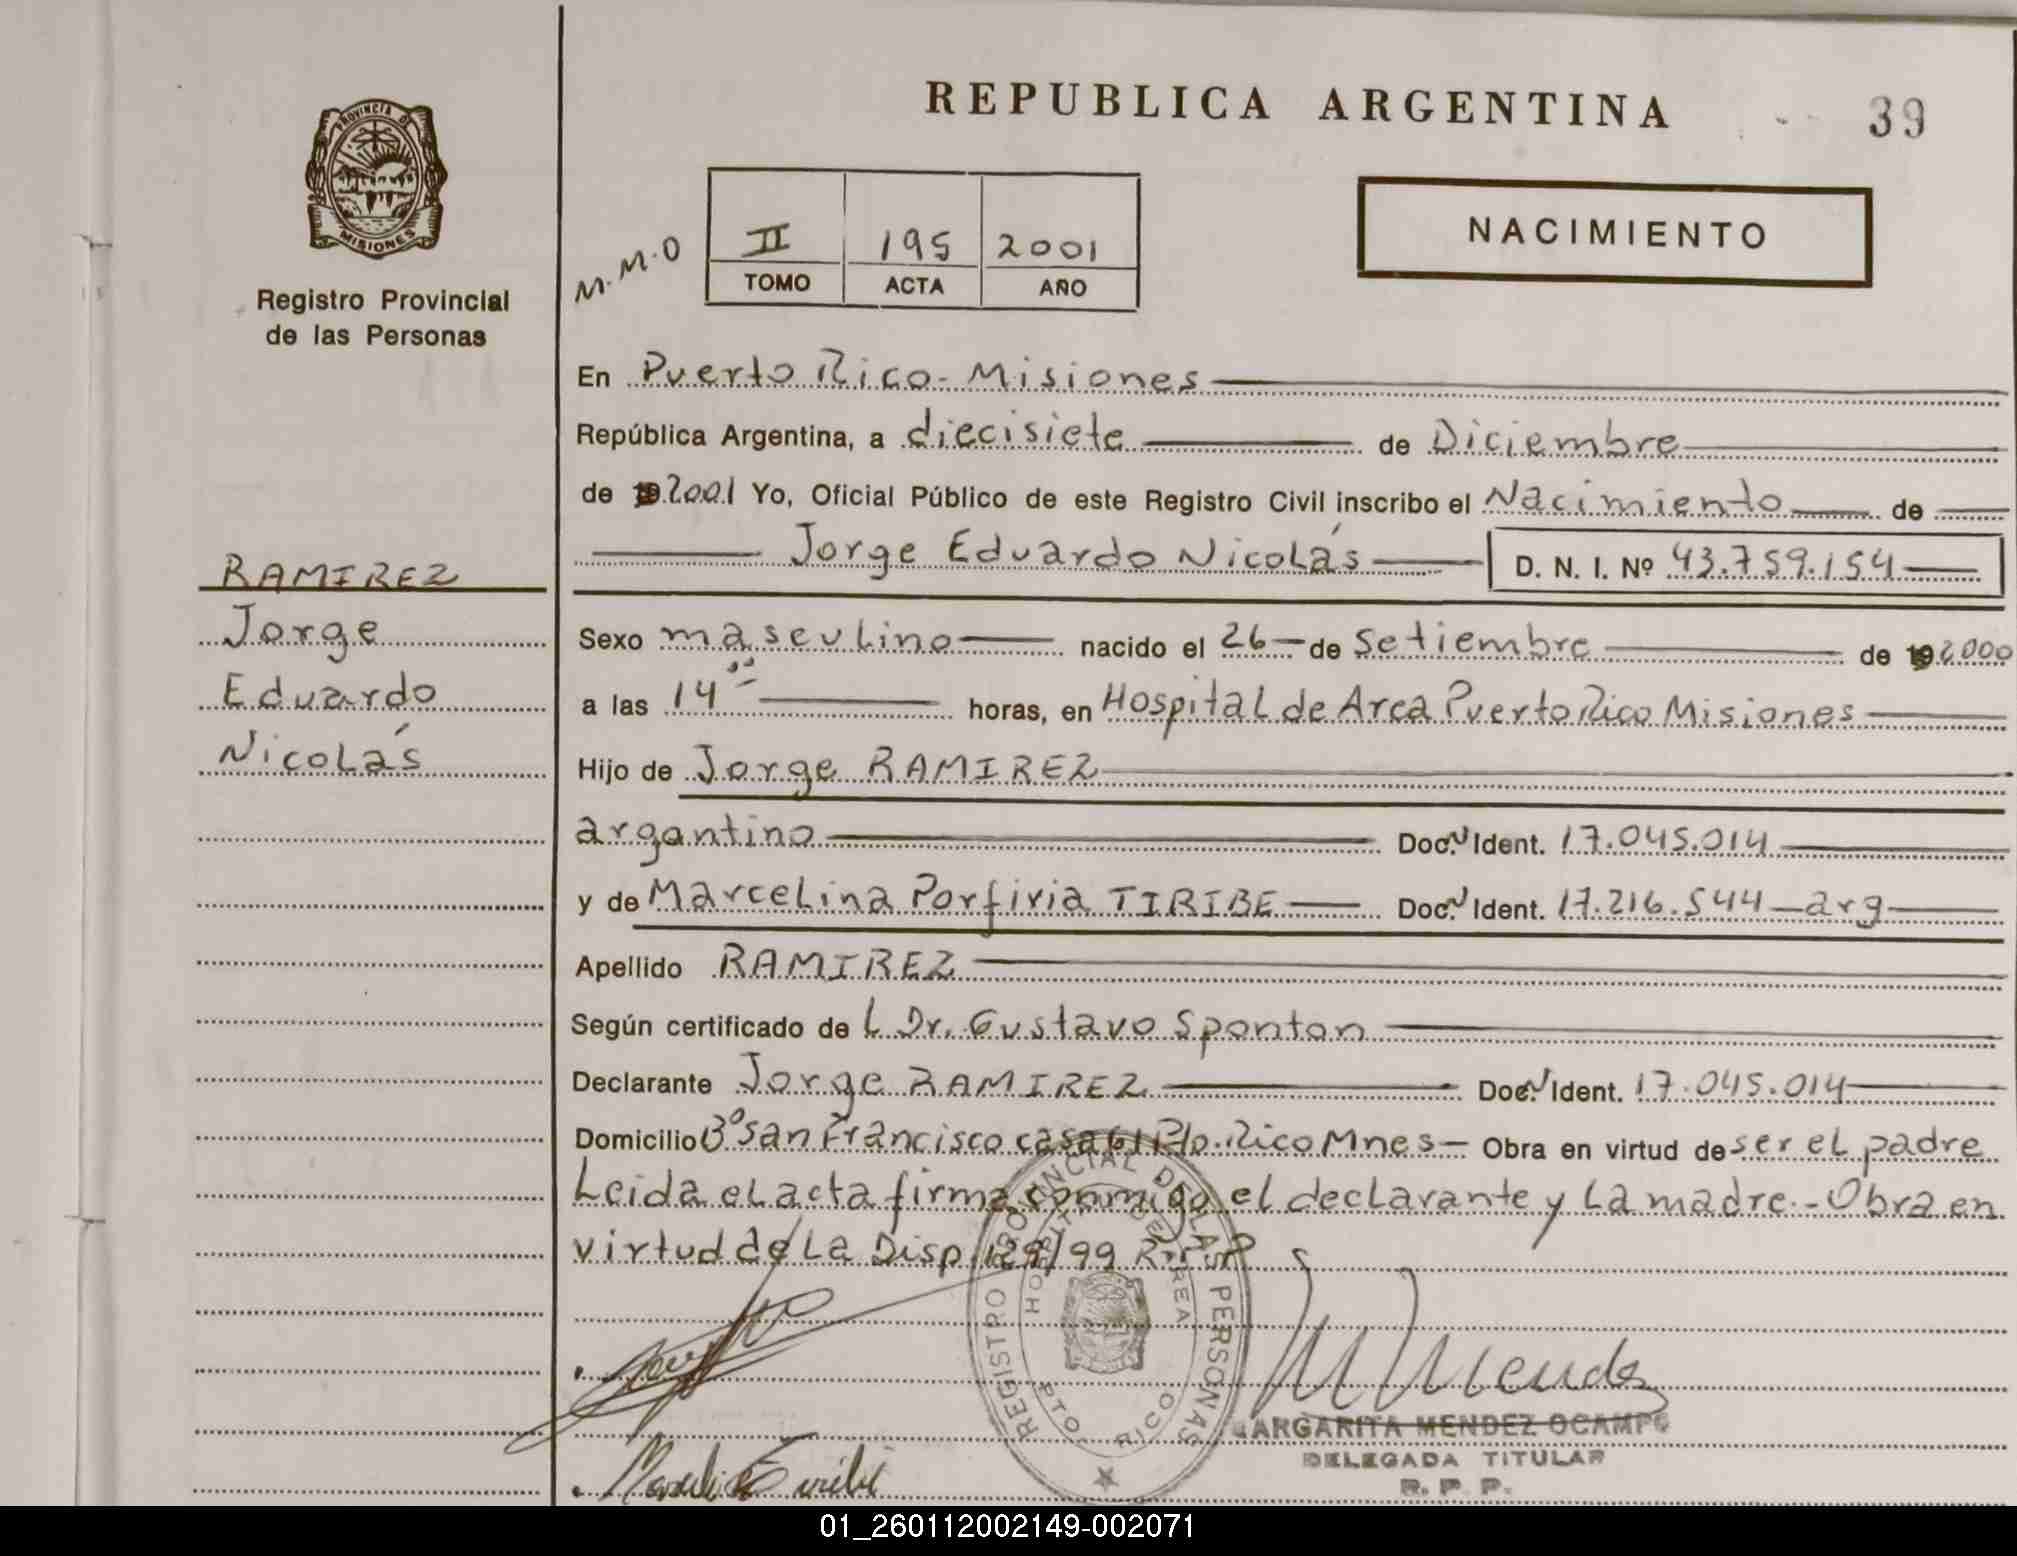 REPUBLICA ARGENTINA
39
PROVINCIA DE
MISIONES
Registro Provincial
de las Personas
M.M.O
II 195 2001
TOMO ACTA AÑO
NACIMIENTO
RAMIREZ
Jorge
Eduardo
Nicolás
En Puerto Rico - Misiones
República Argentina, a diecisiete de Diciembre
de 19 2001 Yo, Oficial Público de este Registro Civil inscribo el Nacimiento de
Jorge Eduardo Nicolás D. N. I. Nº 43.759.154
Sexo masculino nacido el 26 de Setiembre de 19 2000
a las 14 horas, en Hospital de Area Puerto Rico Misiones
Hijo de Jorge RAMIREZ
argantino Doc. Ident. 17.045.014
y de Marcelina Porfiria TIRIBE Doc. Ident. 17.216.544 - arg
Apellido RAMIREZ
Según certificado de L Dr. Gustavo Sponton
Declarante Jorge RAMIREZ Doc. Ident. 17.045.014
Domicilio Bº San Francisco casa 61 Pto. Rico Mnes - Obra en virtud de ser el padre
Leida el acta firma conmigo el declarante y la madre.- Obra en
virtud de la Disp. 129/99 R.P.P
REGISTRO PROVINCIAL DE LAS PERSONAS
HOSPITAL DE AREA
PTO. RICO
MARGARITA MENDEZ OCAMPO
DELEGADA TITULAR
R. P. P.
01_260112002149-002071